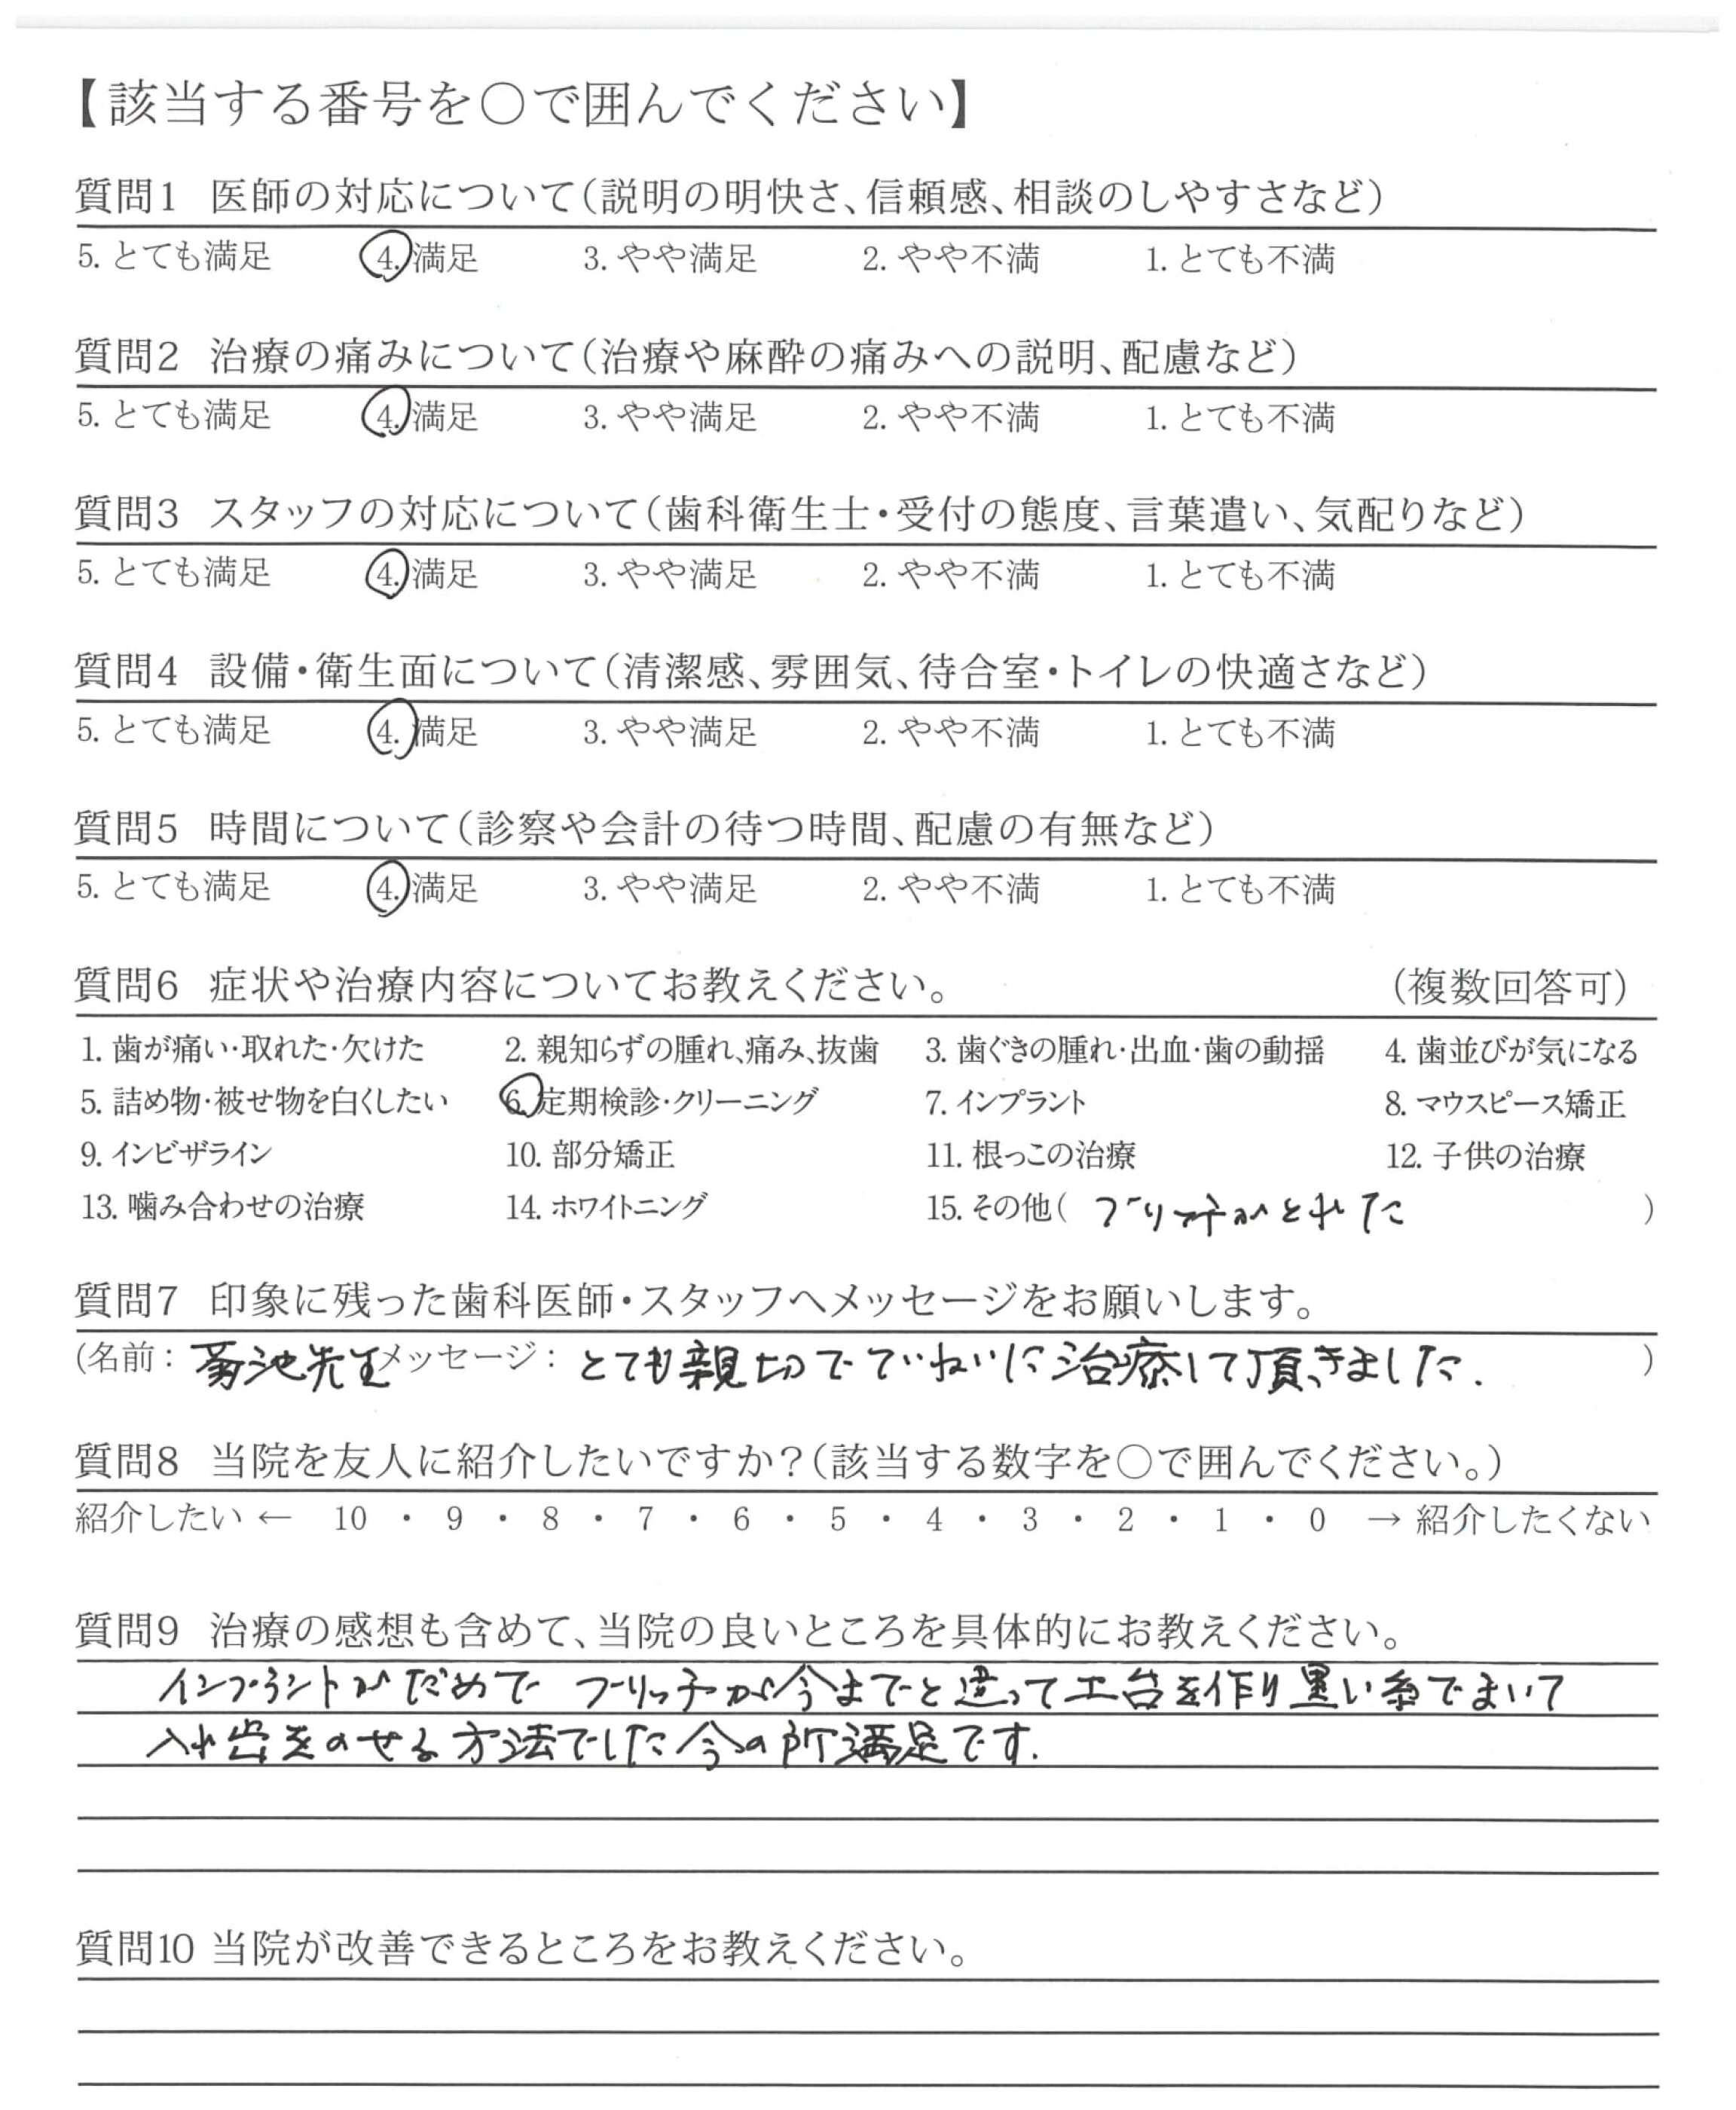 【該当する番号を○で囲んでください】
質問1 医師の対応について(説明の明快さ、信頼感、相談のしやすさなど)
5. とても満足 4. 満足 3. やや満足 2. やや不満 1. とても不満
質問2 治療の痛みについて(治療や麻酔の痛みへの説明、配慮など)
5. とても満足 4. 満足 3. やや満足 2. やや不満 1. とても不満
質問3 スタッフの対応について(歯科衛生士・受付の態度、言葉遣い、気配りなど)
5. とても満足 4. 満足 3. やや満足 2. やや不満 1. とても不満
質問4 設備・衛生面について(清潔感、雰囲気、待合室・トイレの快適さなど)
5. とても満足 4. 満足 3. やや満足 2. やや不満 1. とても不満
質問5 時間について(診察や会計の待つ時間、配慮の有無など)
5. とても満足 4. 満足 3. やや満足 2. やや不満 1. とても不満
質問6 症状や治療内容についてお教えください。 (複数回答可)
1. 歯が痛い・取れた・欠けた 2. 親知らずの腫れ、痛み、抜歯 3. 歯ぐきの腫れ・出血・歯の動揺 4. 歯並びが気になる
5. 詰め物・被せ物を白くしたい 6. 定期検診・クリーニング 7. インプラント 8. マウスピース矯正
9. インビザライン 10. 部分矯正 11. 根っこの治療 12. 子供の治療
13. 噛み合わせの治療 14. ホワイトニング 15. その他( ブリッチがとれた )
質問7 印象に残った歯科医師・スタッフへメッセージをお願いします。
(名前: 菊池先生 メッセージ: とても親切でていねいに治療して頂きました. )
質問8 当院を友人に紹介したいですか?(該当する数字を○で囲んでください。)
紹介したい ← 10 ・ 9 ・ 8 ・ 7 ・ 6 ・ 5 ・ 4 ・ 3 ・ 2 ・ 1 ・ 0 → 紹介したくない
質問9 治療の感想も含めて、当院の良いところを具体的にお教えください。
インプラントがだめで ブリッチが今までと違って土台を作り黒い糸でまいて
入れ歯をのせる方法でした今の所満足です.
質問10 当院が改善できるところをお教えください。